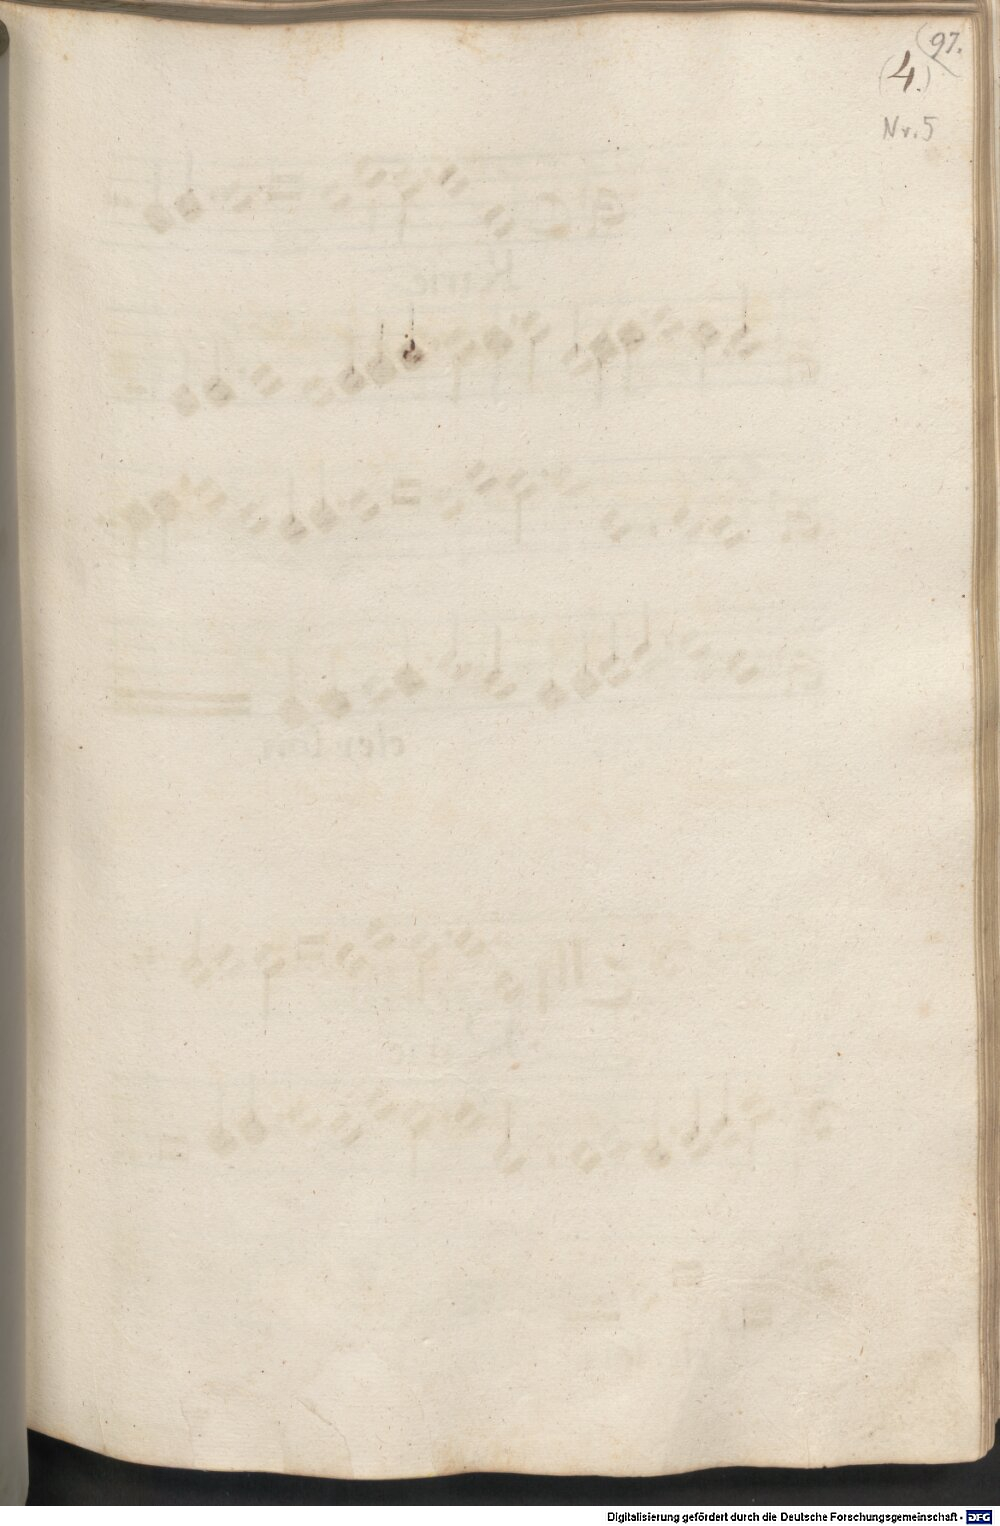 97.
(4.)
Nr. 5
Digitalisierung gefördert durch die Deutsche Forschungsgemeinschaft - DFG